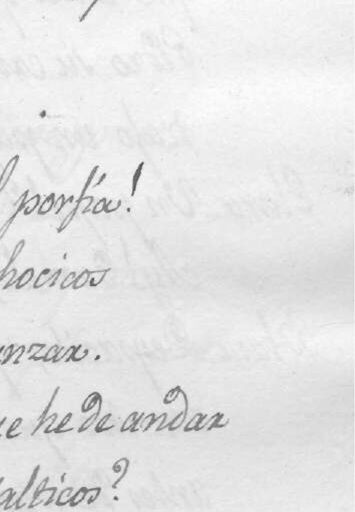 porfía!
hocicos
nzar.
e he de andar
alticos?